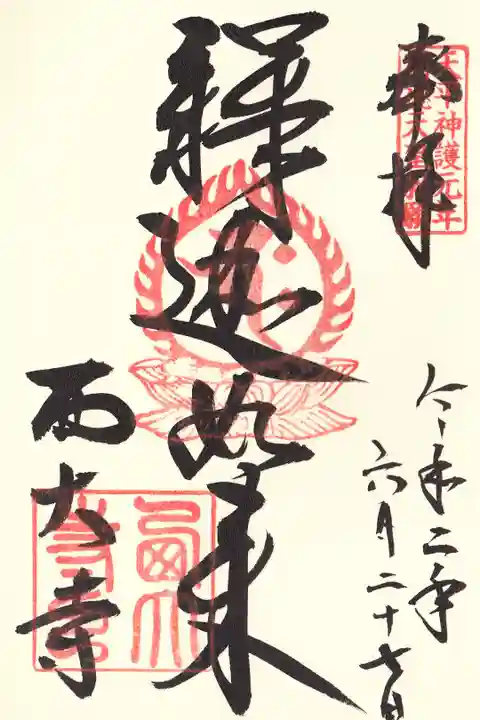 奉拝
天平神護元年
釋迦如来
西大寺
令和二年
六月二十七日